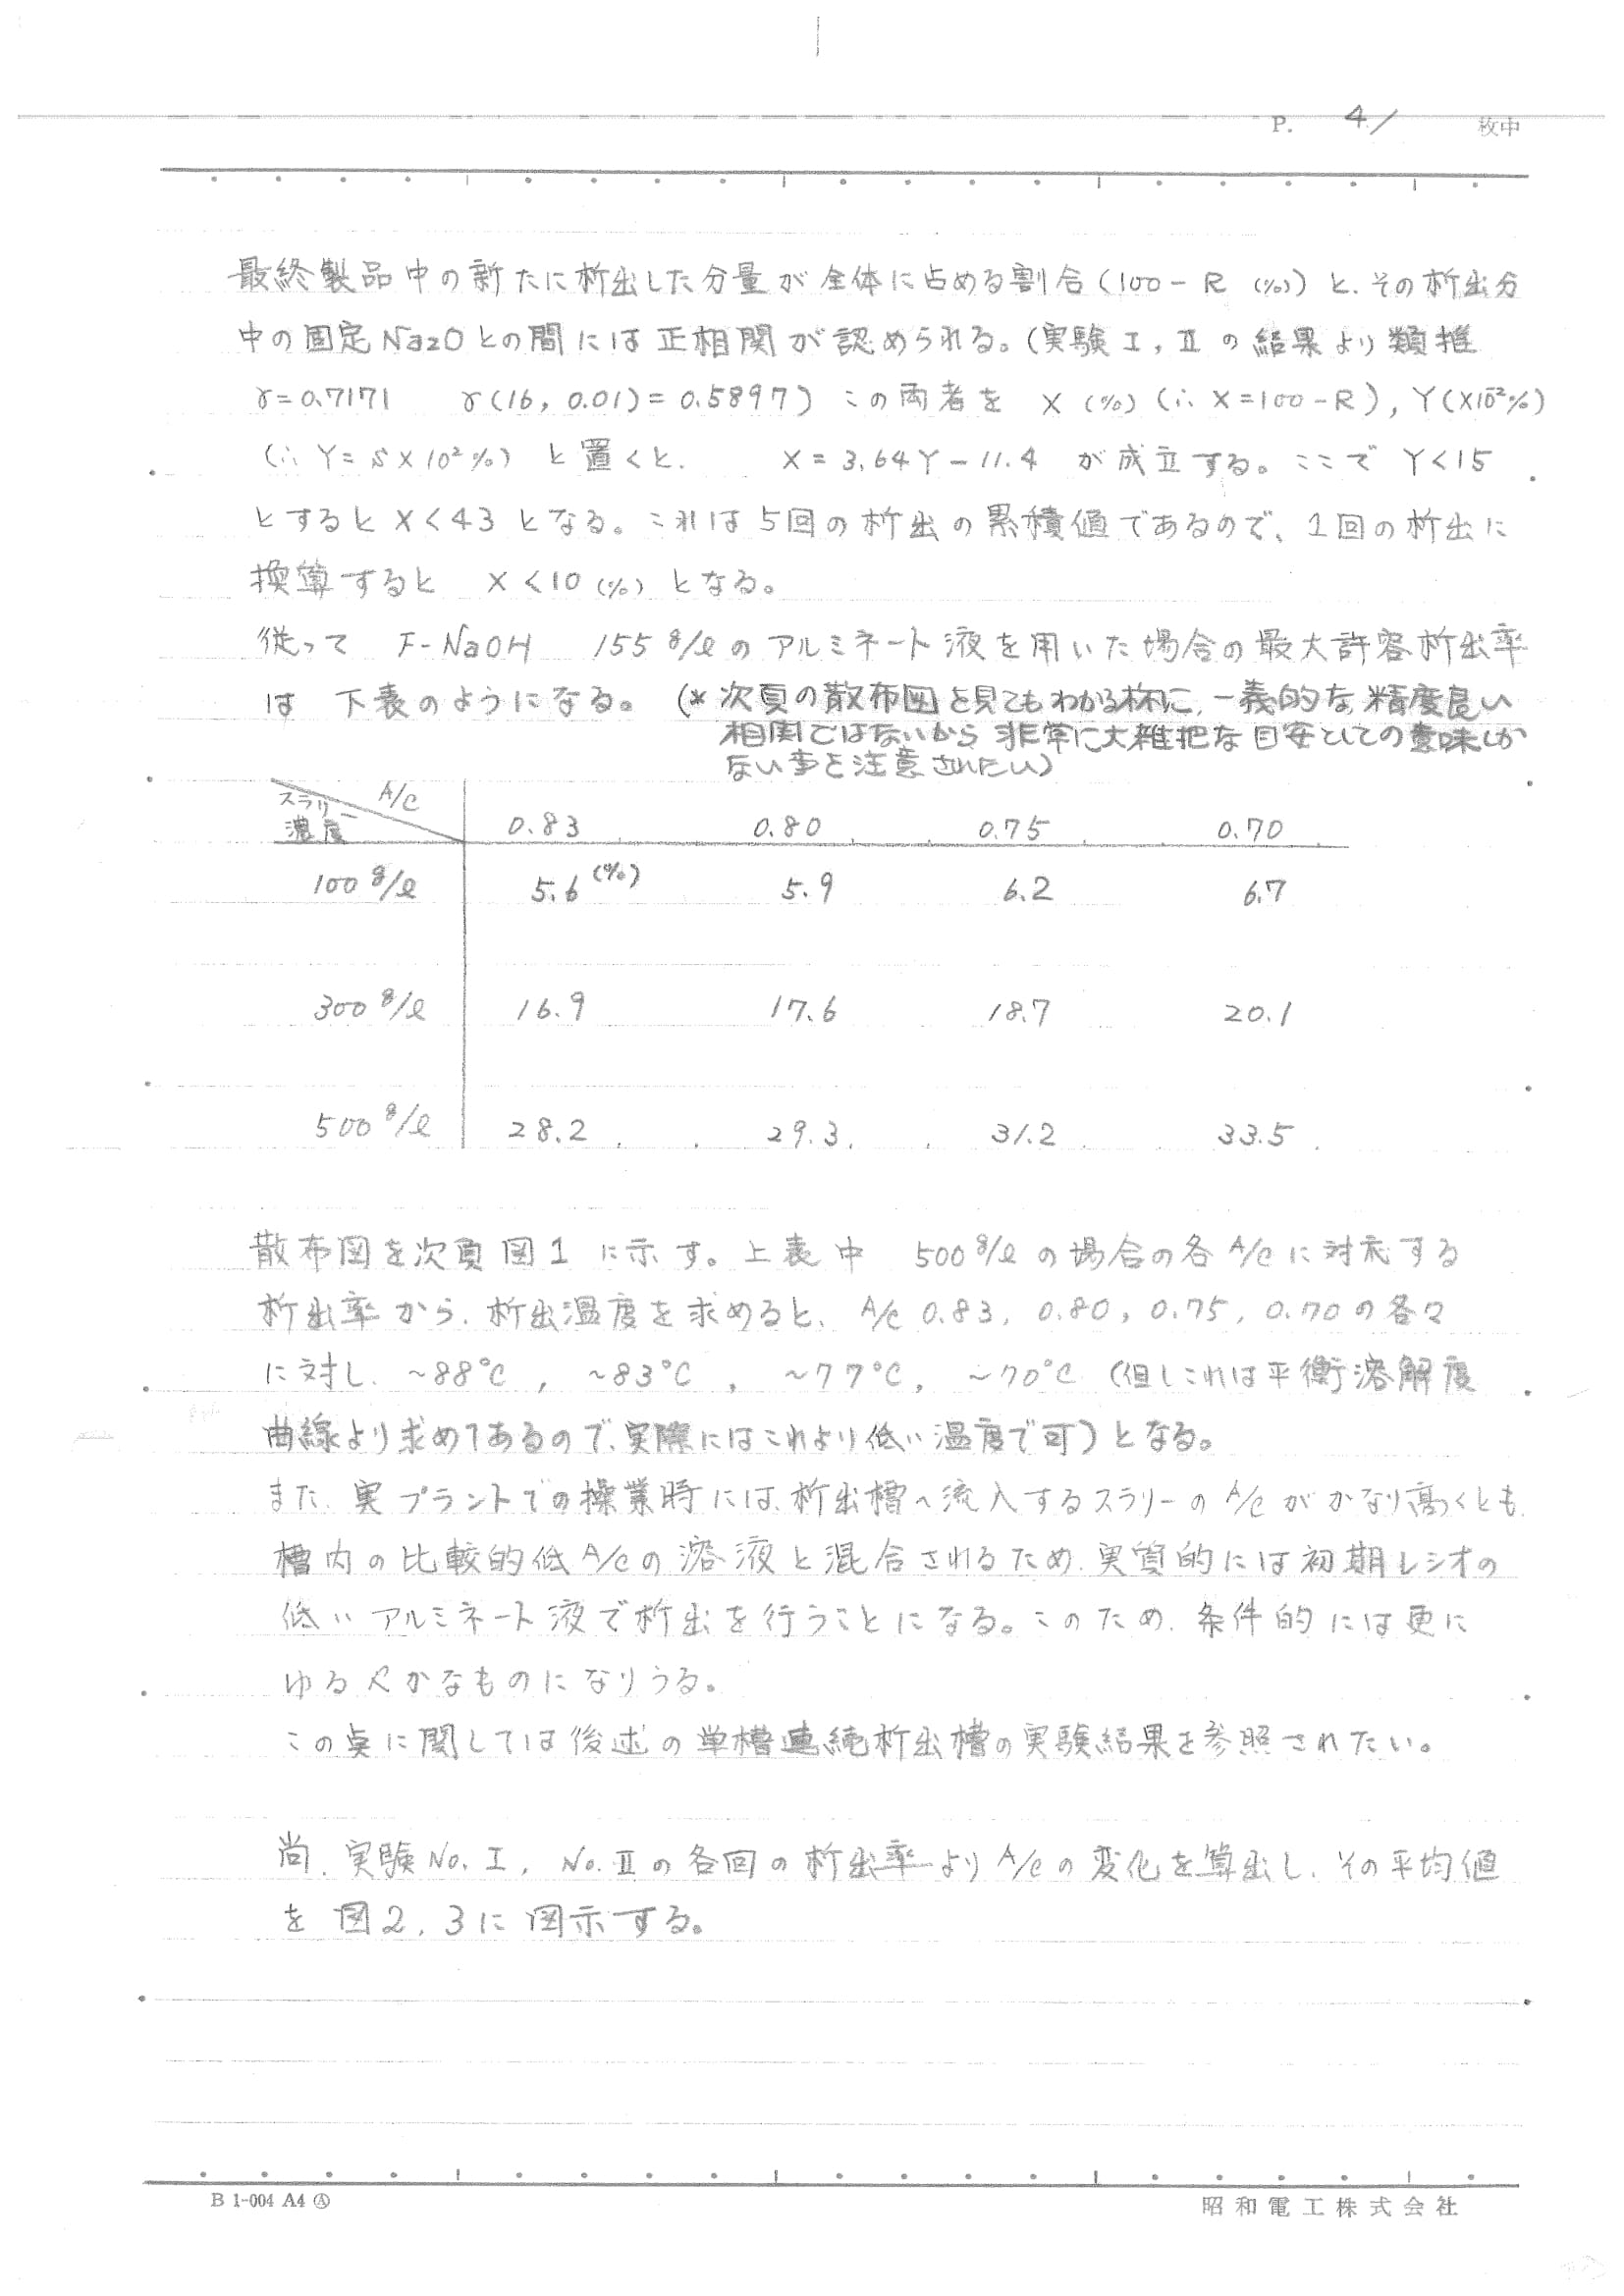 P. 4/ 枚中
最終製品中の新たに析出した分量が全体に占める割合(100-R (%))と、その析出分
中の固定Na2Oとの間には正相関が認められる。(実験I, IIの結果より類推
γ=0.7171 γ(16, 0.01)=0.5897) この両者を X (%) (∴ X=100-R), Y(×10⁻²%)
(∴ Y=S×10²%) と置くと、 X=3.64Y-11.4 が成立する。ここで Y<15
とすると X<43 となる。これは5回の析出の累積値であるので、1回の析出に
換算すると X<10 (%) となる。
従って F-NaOH 155 g/ℓのアルミネート液を用いた場合の最大許容析出率
は 下表のようになる。(* 次頁の散布図を見てもわかる様に、一義的な、精度良い
相関ではないから 非常に大雑把な目安としての意味しか
ない事を注意されたい)
スラリー濃度 A/C 0.83 0.80 0.75 0.70
100 g/ℓ 5.6 (%) 5.9 6.2 6.7
300 g/ℓ 16.9 17.6 18.7 20.1
500 g/ℓ 28.2 29.3 31.2 33.5
散布図を次頁図1 に示す。上表中 500 g/ℓの場合の各A/Cに対応する
析出率から、析出温度を求めると、A/C 0.83, 0.80, 0.75, 0.70の各々
に対し、~88℃, ~83℃, ~77℃, ~70℃ (但しこれは平衡溶解度
曲線より求めてあるので、実際にはこれより低い温度で可)となる。
また、実プラントでの操業時には、析出槽へ流入するスラリーのA/Cがかなり高くとも、
槽内の比較的低A/Cの溶液と混合されるため、実質的には初期レシオの
低いアルミネート液で析出を行うことになる。このため、条件的には更に
ゆるやかなものになりうる。
この点に関しては後述の単槽連続析出槽の実験結果を参照されたい。
尚、実験No. I, No. IIの各回の析出率よりA/Cの変化を算出し、その平均値
を 図2, 3に図示する。
B 1-004 A4 Ⓐ
昭和電工株式会社